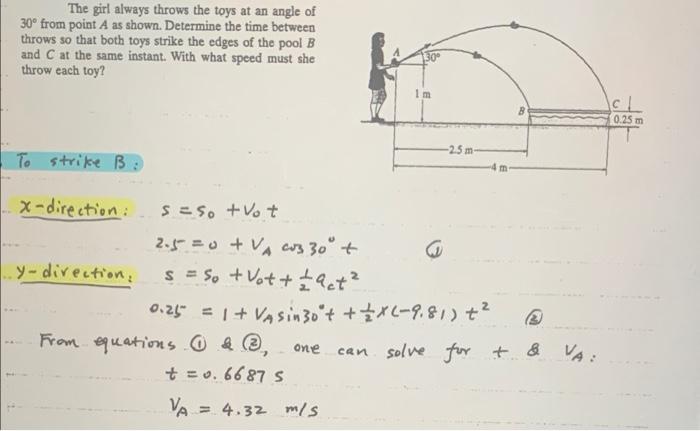 The girl always throws the toys at an angle of
30° from point A as shown. Determine the time between
throws so that both toys strike the edges of the pool B
and C at the same instant. With what speed must she
throw each toy?
A
30°
1 m
B
C
0.25 m
2.5 m
4 m
To strike B:
x-direction: s = s₀ + V₀ t
2.5 = 0 + V_A cos 30° t ①
y-direction: s = s₀ + V₀t + ½ a_c t²
0.25 = 1 + V_A sin 30° t + ½ × (-9.81) t² ②
From equations ① & ②, one can solve for t & V_A:
t = 0.6687 s
V_A = 4.32 m/s